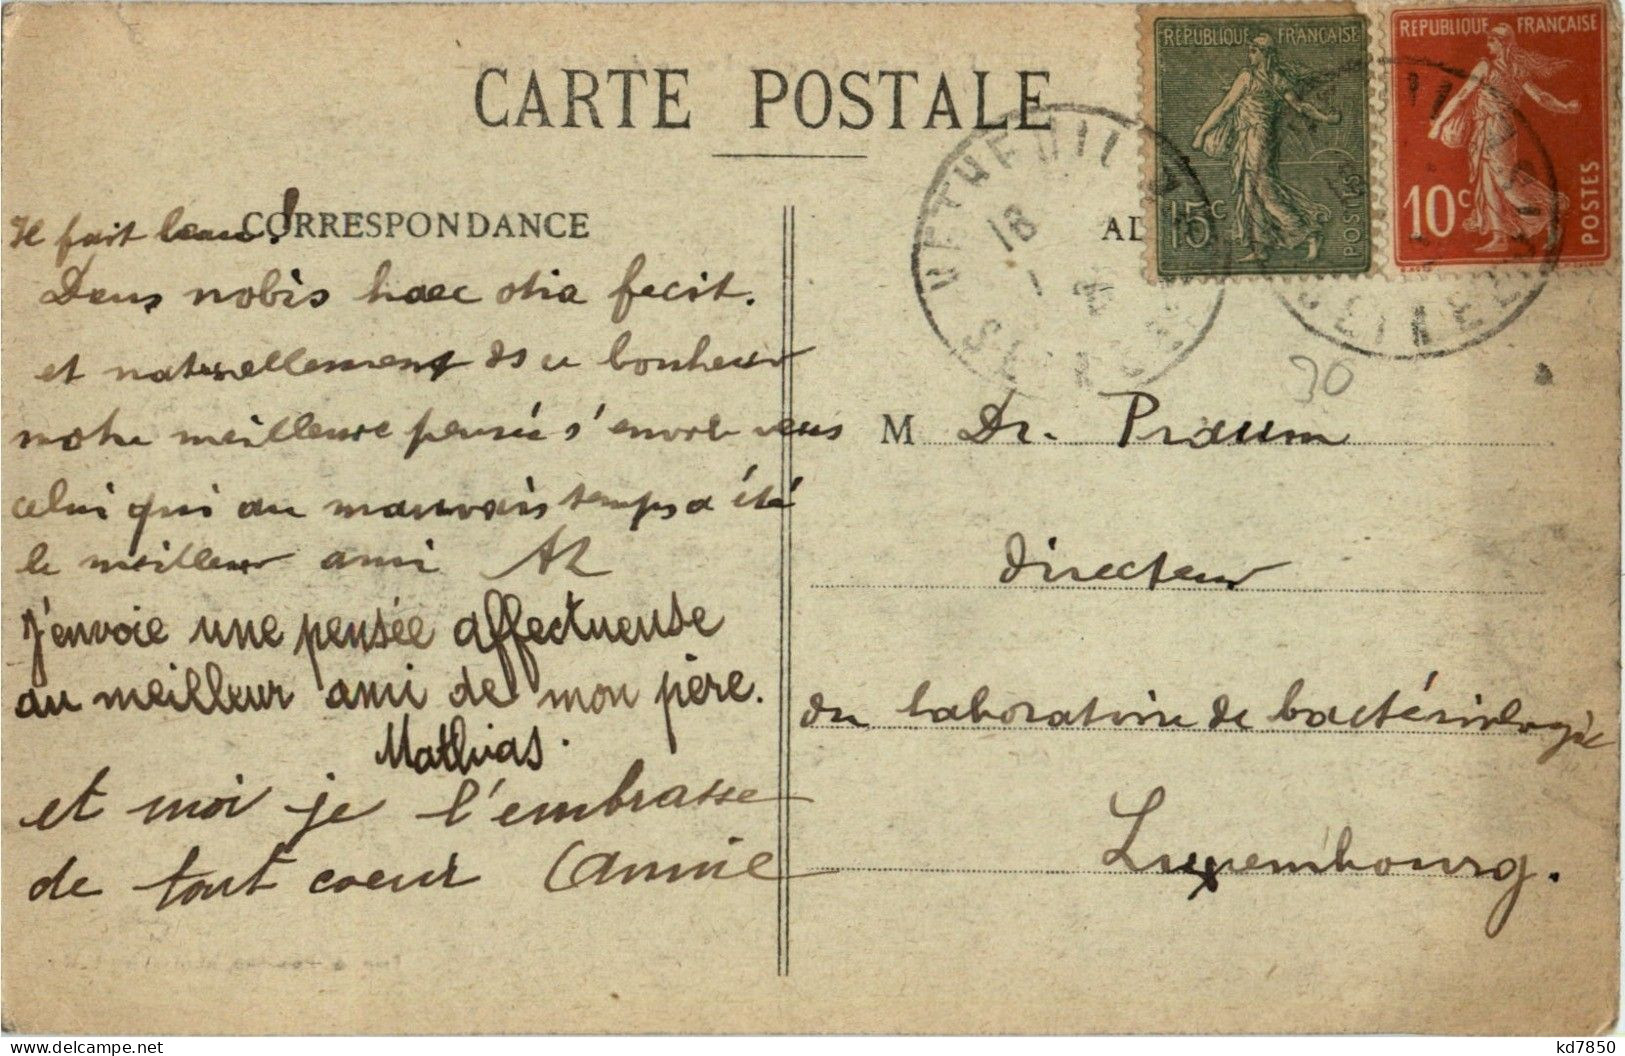 CARTE POSTALE
RÉPUBLIQUE FRANÇAISE
15c
POSTES
RÉPUBLIQUE FRANÇAISE
10c
POSTES
VETHEUIL
18
SEINE
CORRESPONDANCE
Il fait beau!
Deus nobis haec otia fecit.
et naturellement ds ce bonheur
notre meilleure pensée s'envole vers
celui qui au mauvais temps a été
le meilleur ami
J'envoie une pensée affectueuse
au meilleur ami de mon père.
Mathias.
et moi je l'embrasse
de tout coeur Annie
30
M Dr. Praum
directeur
du laboratoire de bactériologie
Luxembourg.
kd7850